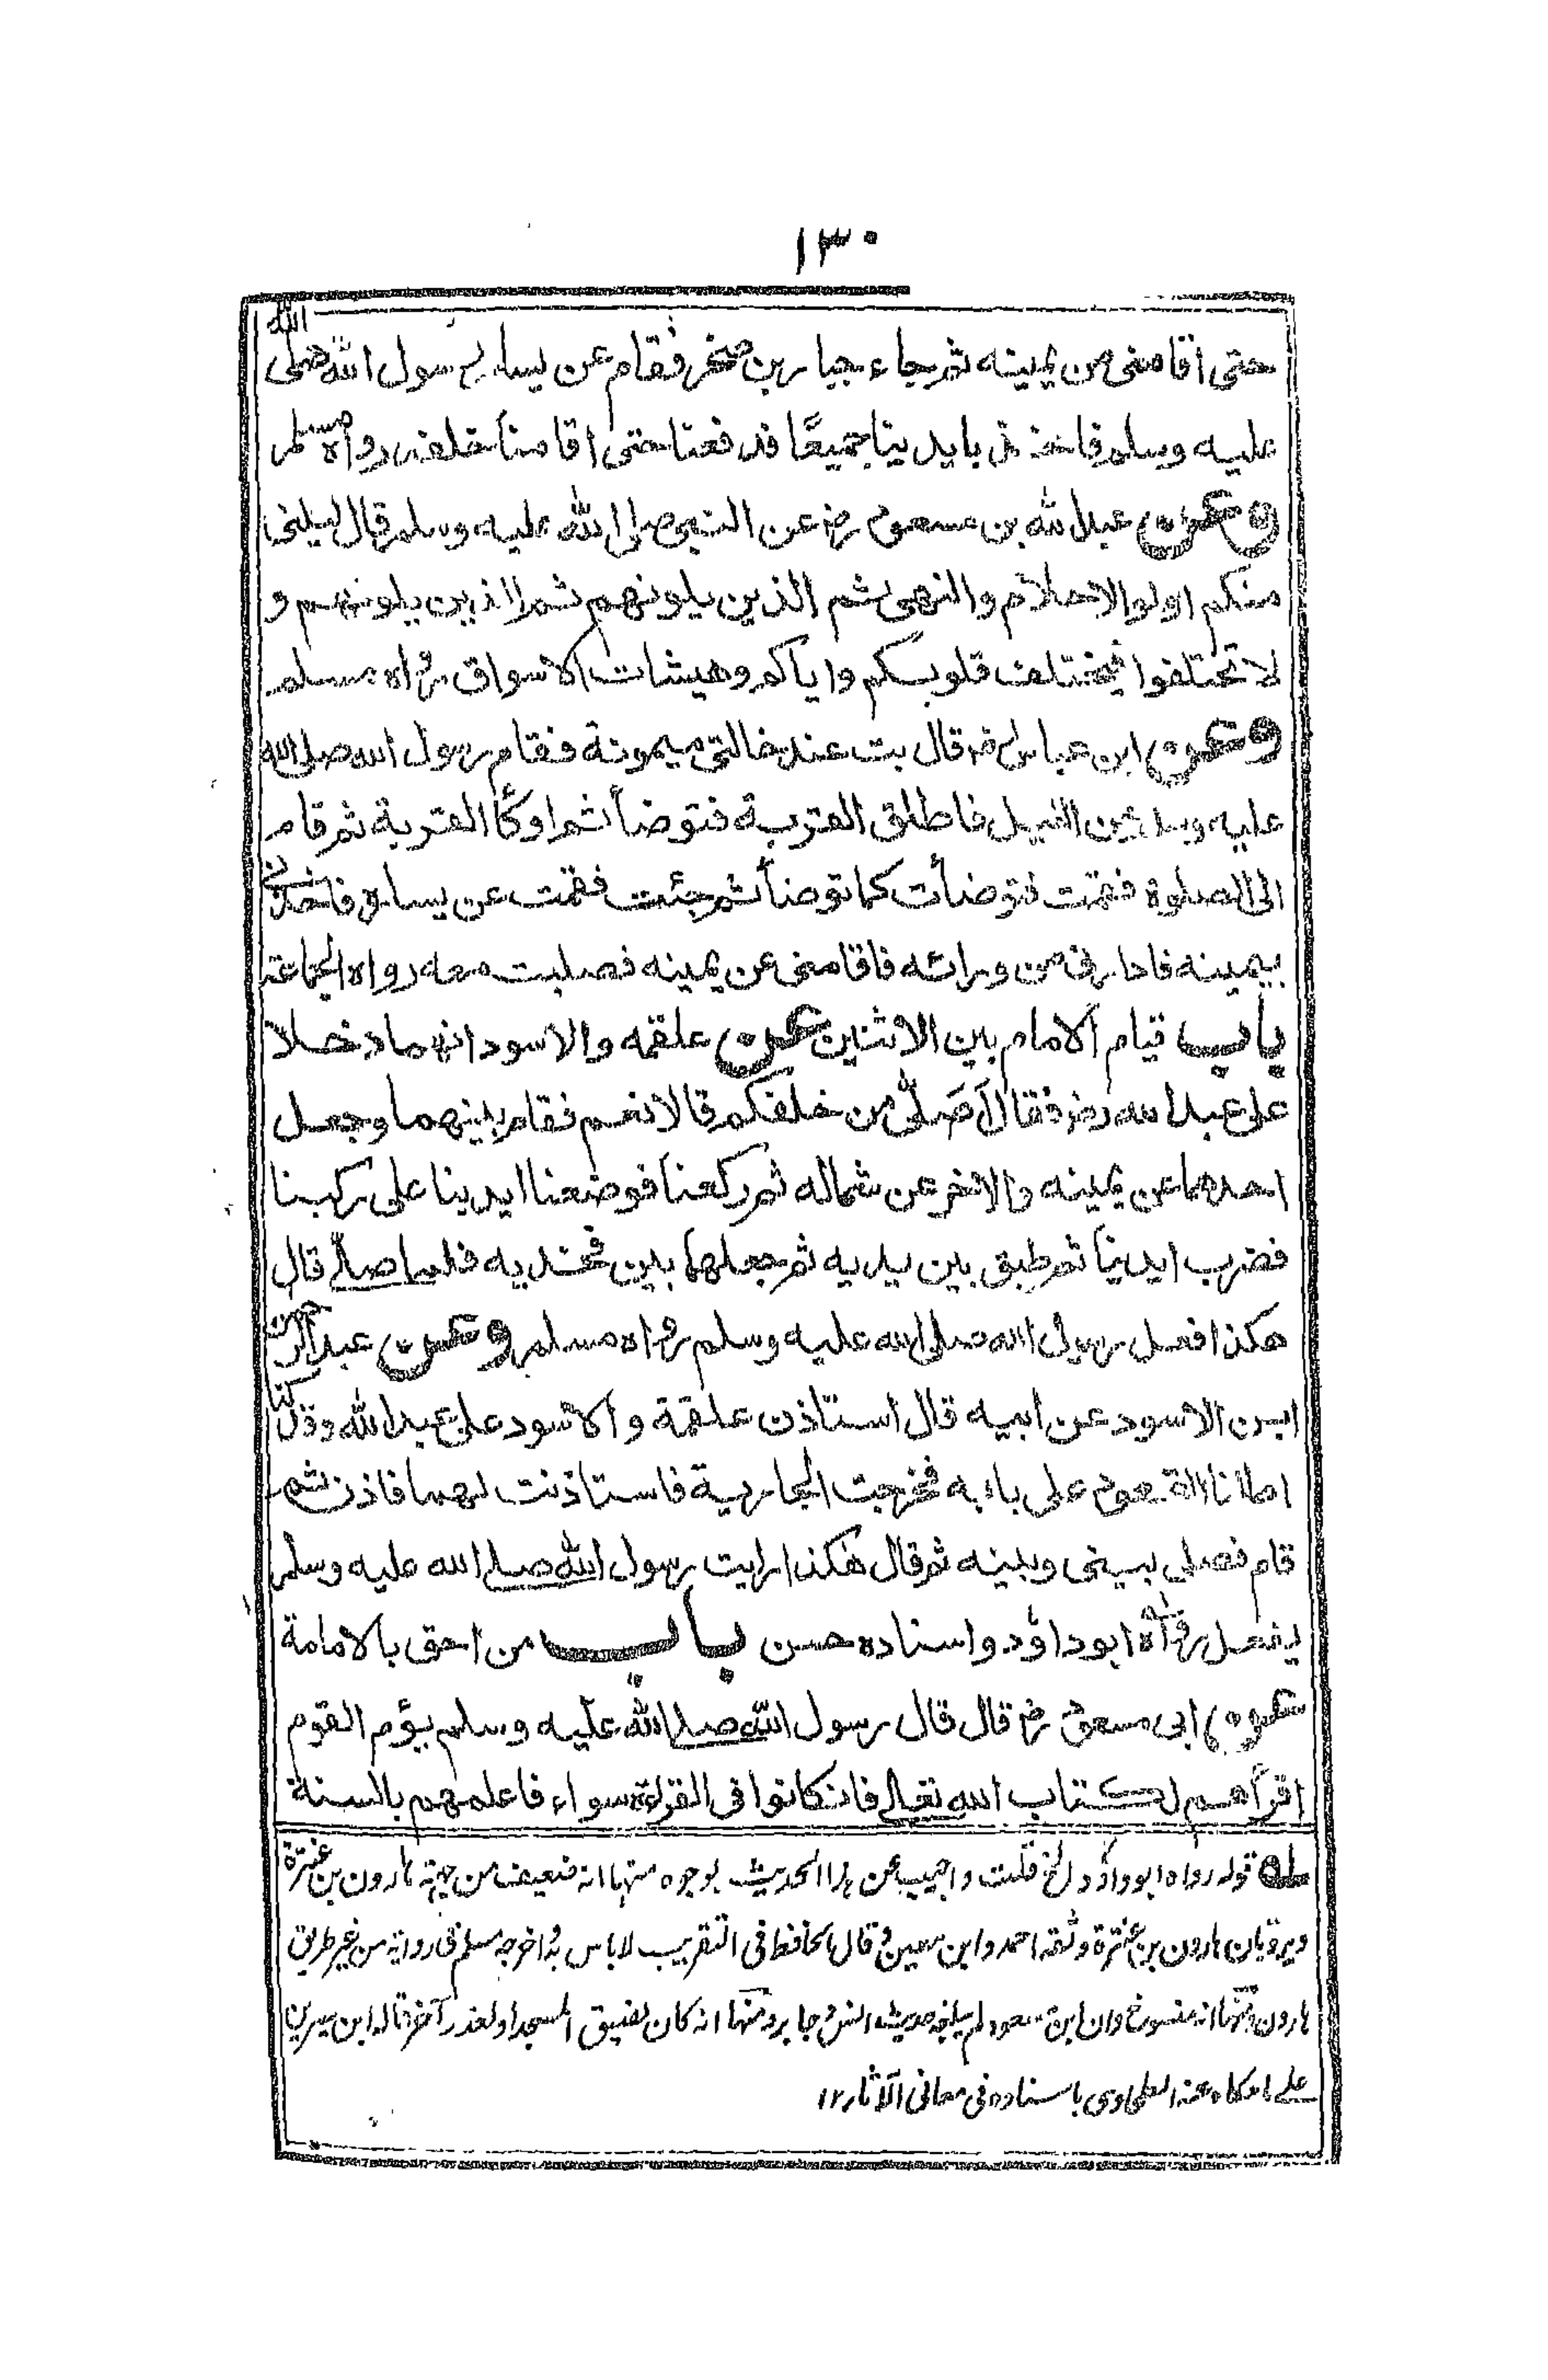 ١٣٠
حتى اقامنى عن يمينه ثم جاء جبار بن صخر فقام عن يسار رسول الله صلى الله
عليه وسلم فاخذ بايدينا جميعًا فدفعنا حتى اقامنا خلفه رواه مسلم
وعن عبد الله بن مسعود رض عن النبي صلى الله عليه وسلم قال ليلينى
منكم اولوا الاحلام والنهى ثم الذين يلونهم ثم الذين يلونهم و
لا تختلفوا فيختلف قلوبكم واياكم وهيشات الاسواق رواه مسلم
وعن ابن عباس رض قال بت عند خالتى ميمونة فقام رسول الله صلى الله
عليه وسلم من الليل فاطلق القربة فتوضأ ثم اوكأ القربة ثم قام
الى الصلوة فقمت فتوضأت كما توضأ ثم جئت فقمت عن يساره فاخذنى
بيمينه فادارنى من ورائه فاقامنى عن يمينه فصليت معه رواه الجماعة
باب قيام الامام بين الاثنين عن علقمه والاسود انهما دخلا
على عبد الله رض فقال أَصَلّٰى من خلفكم قالا نعم فقام بينهما وجعل
احدهما عن يمينه والاخر عن شماله ثم ركعنا فوضعنا ايدينا على ركبنا
فضرب ايدينا ثم طبق بين يديه ثم جعلهما بين فخذيه فلما صلى قال
هكذا فعل رسول الله صلى الله عليه وسلم رواه مسلم وعن عبد الرحمن
ابن الاسود عن ابيه قال استاذن علقمة والاسود على عبد الله وقد كنا
اطلنا القعود على بابه فخرجت الجارية فاستاذنت لهما فاذن ثم
قام فصلى بينى وبينه ثم قال هٰكذا رايت رسول الله صلى الله عليه وسلم
يفعل رواه ابو داؤد واسناده حسن باب من احق بالامامة
عن ابى مسعود رض قال قال رسول الله صلى الله عليه وسلم يؤم القوم
اقرأهم لكتاب الله تعالى فان كانوا فى القراءة سواء فاعلمهم بالسنة
له قوله رواه ابو داؤد الخ قلت واجيب عن هذا الحديث بوجوه منها انه ضعيف من جهة هارون بن عنترة
ويرد بان هارون بن عنترة وثقه احمد وابن معين وقال الحافظ فى التقريب لا باس به واخرجه مسلم فى رواية من غير طريق
هارون ومنها انه منسوخ وان ابن مسعود لم يبلغه حديث انس وجابر ومنها انه كان لضيق المسجد او لعذر آخر قاله ابن سيرين
على ما حكاه عنه الطحاوى باسناده فى معانى الآثار ١٢